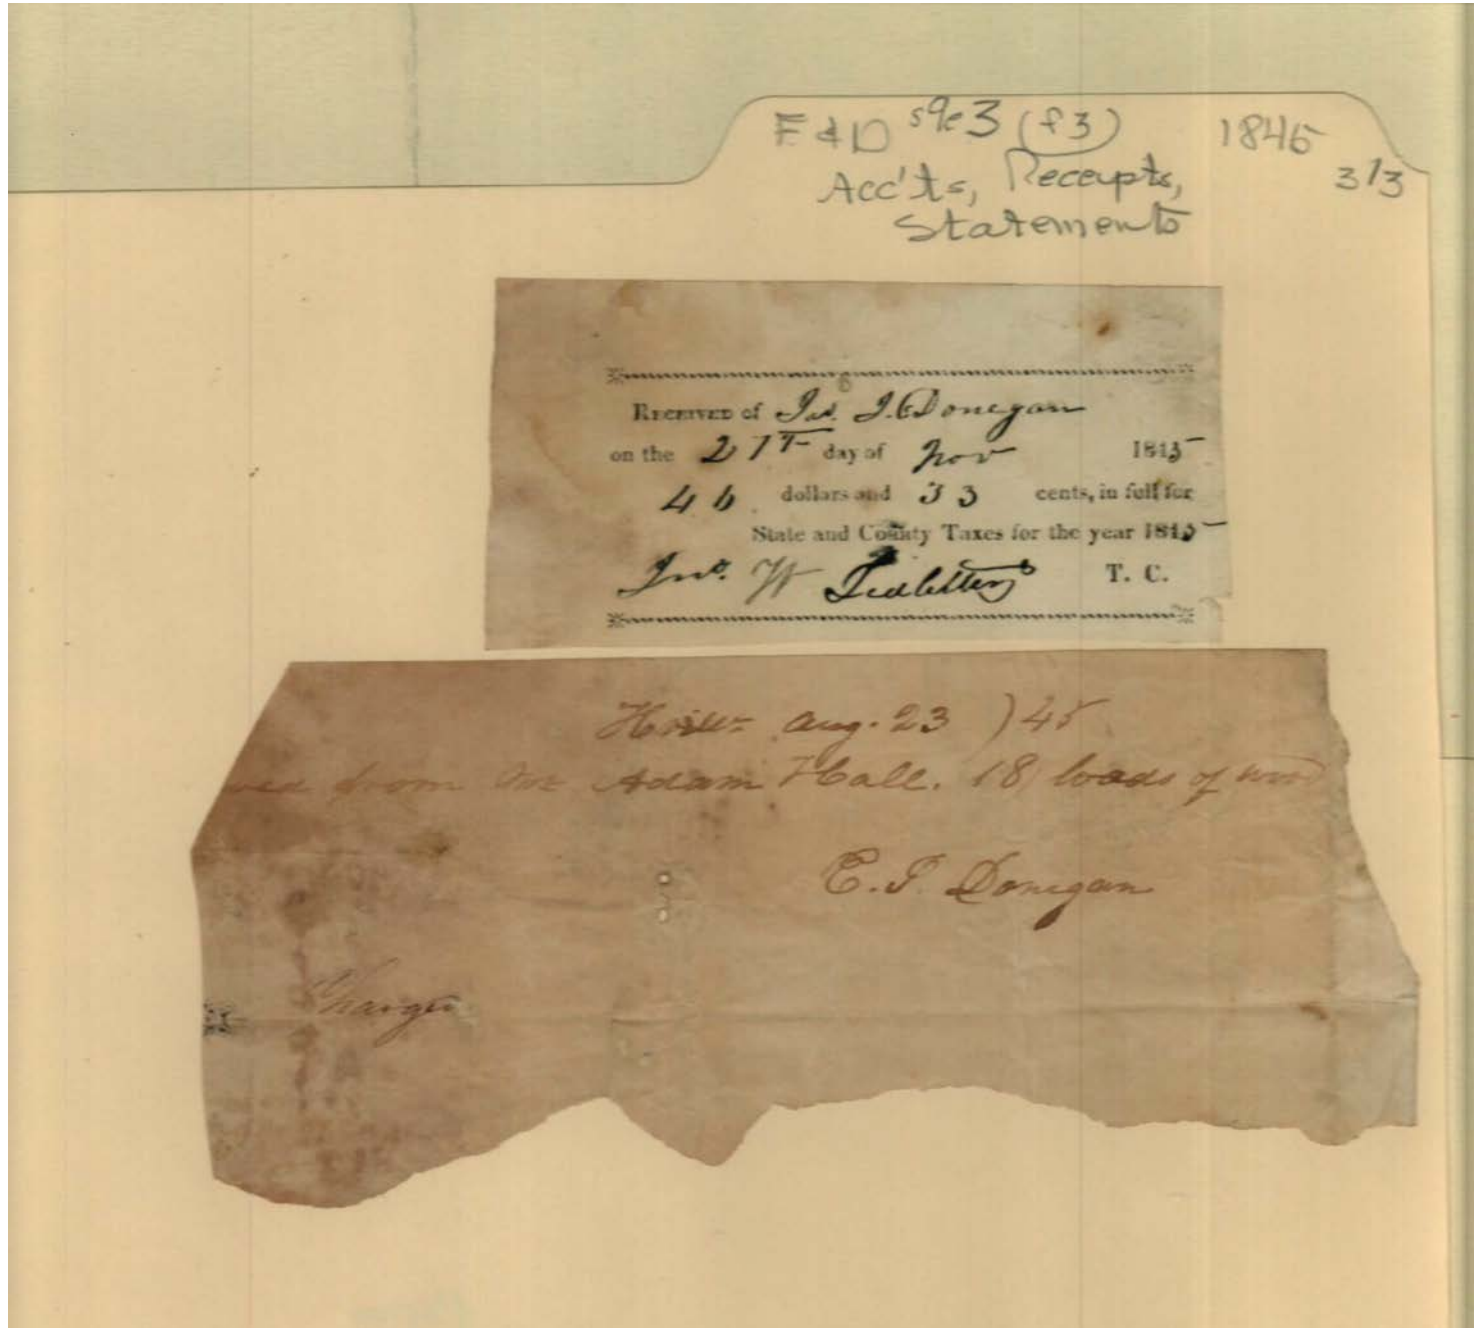 F & D s9e3 (f3) 1845
Acc'ts, Receipts, 3/3
Statements
RECEIVED of Jas. J. Donegan
on the 21st day of Nov 1845
46 dollars and 33 cents, in full for
State and County Taxes for the year 1845
Jno. W Ledbetter T. C.
Aug. 23 /45
ved from Mr Adam Hall. 18 loads of wood
E. P. Donegan